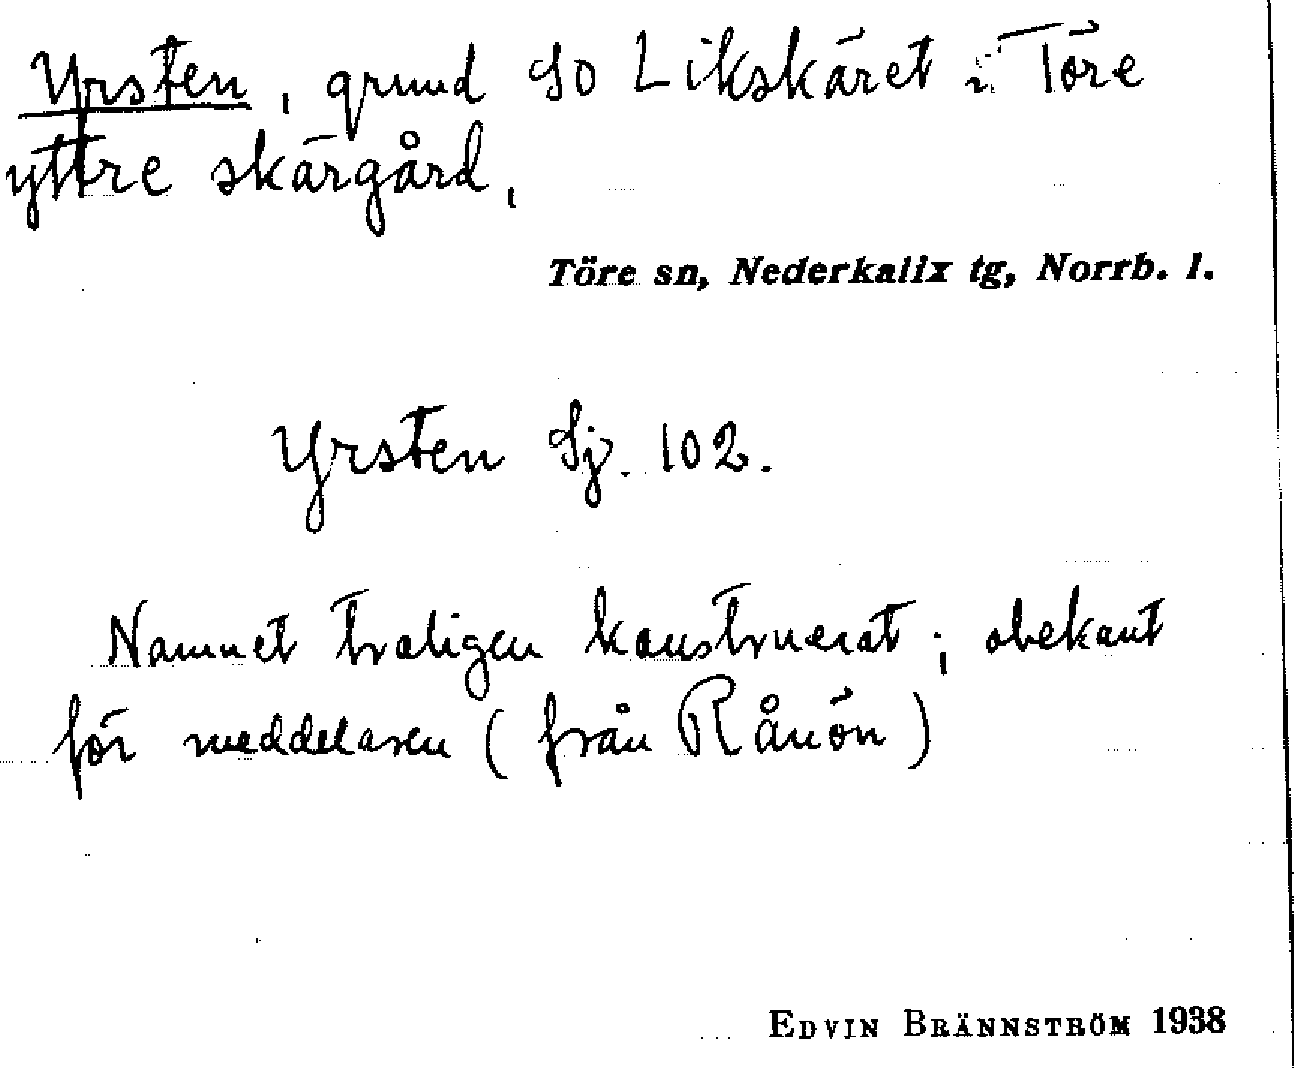 Yrsten, grund SO Likskäret i Töre
yttre skärgård,
Töre sn, Nederkalix tg, Norrb. l.
Yrsten Sj. 102.
Namnet troligen konstruerat; obekant
för meddelaren (från Rånön)
EDVIN BRÄNNSTRÖM 1938